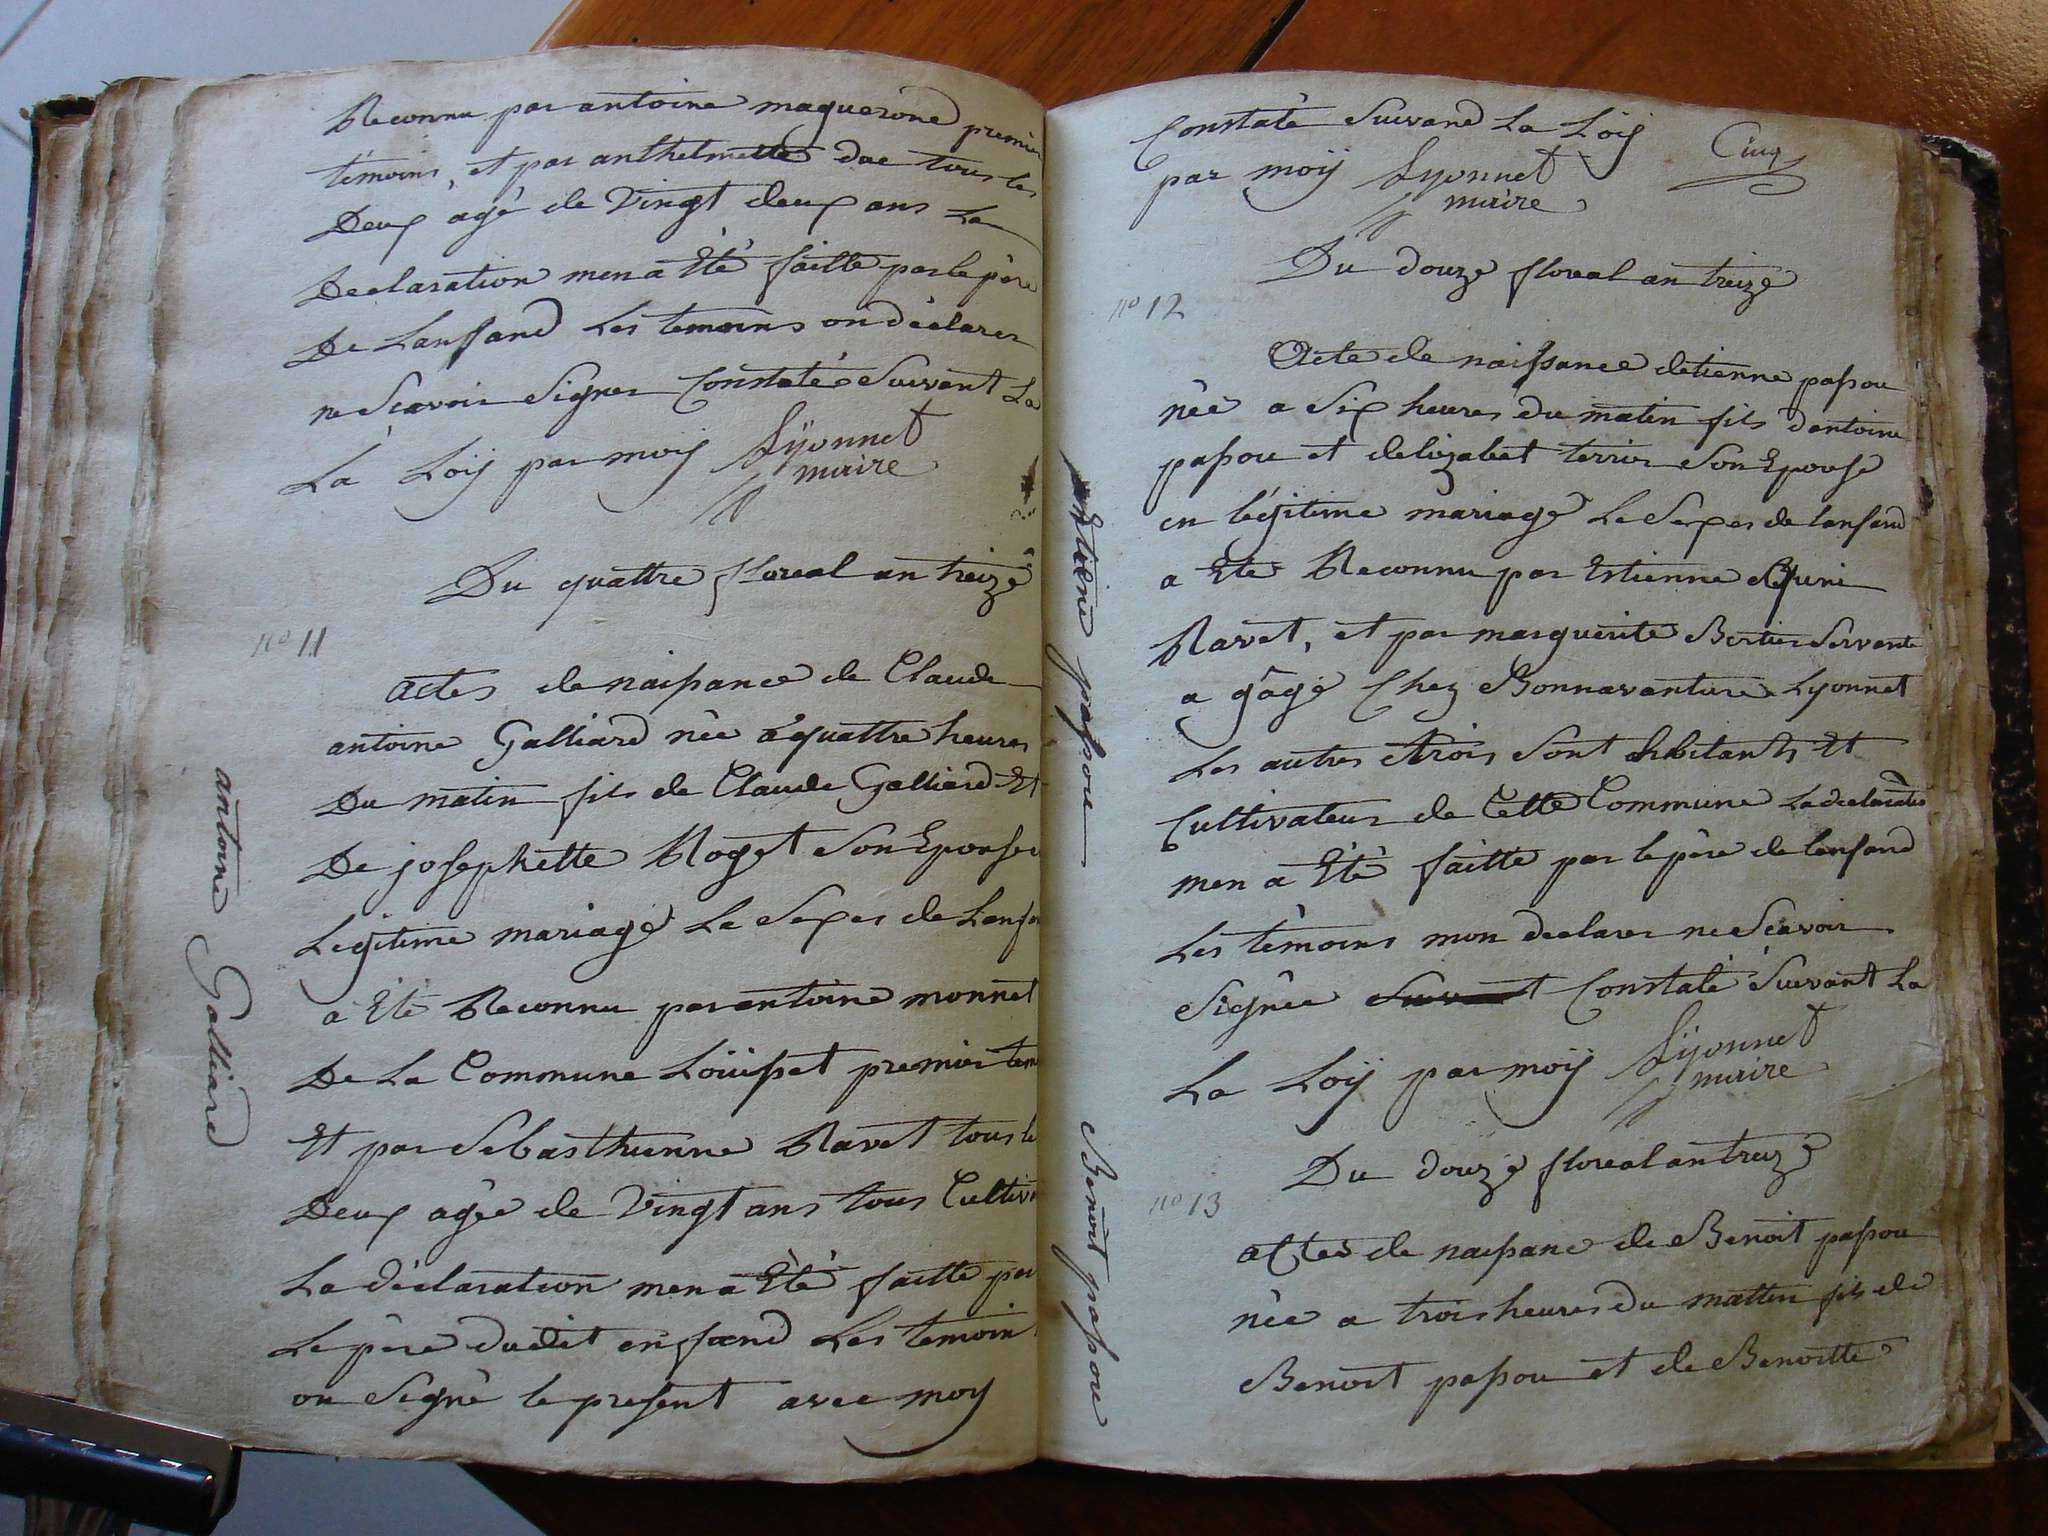 Reconnu par antoine maquerond premier
témoins, et par anthelmette duc tous les
Deux agé de Vingt deux ans La
Declaration men a Eté faitte par le père
De Lanfand Les temoins on déclarer
ne Scavoir Signer Constatée Suivant La
La Loÿ par moÿ Lÿonnet
maire
Du quattre floreal an treize
no 11
actes de naissance de Claude
antoine Galliard née a quattre heures
Du matin fils de Claude Galliard Et
De josephette Roget Son Epouse
Legitime mariage Le Sexes de Lanfa
a Eté Reconnu par antoine monnet
De La Commune Loüisset premier tem
Et par Sébasthienne Ravet tous le
Deux agée de Vingt ans tous Cultiv
La déclaration men a Eté faitte par
Le père dudit enfand Les temoin
on Signé le present avec moy
antoine Galliard
Constaté Suivand La Loÿ
Cinq
par moÿ Lyonnet
maire
Du douze floreal an treize
no 12
Acte de naissance detienne passou
née a Six heures du matin fils dantoine
passou et delizabet terrier Son Epouse
en légitime mariage Le Sexes de lanfand
a Eté Reconnu par Estienne
Ravet, et par marguerite Bertier Servante
a gâgé Chez Bonnavanture Lyonnet
Les autres trois Sont habitants Et
Cultivateur de Cette Commune La declaratio
men a Eté faitte par le père de lenfand
Les témoins mon declarer ne Scavoir
Signée Suivant Constaté Suivant La
La Loÿ par moÿ Lÿonnet
maire
Etiene passou
Du douze floreal an treize
no 13
actes de naissance de Benoit passou
née a trois heures du mattin fils de
Benoit passou et de Benoitte
Benoit passou